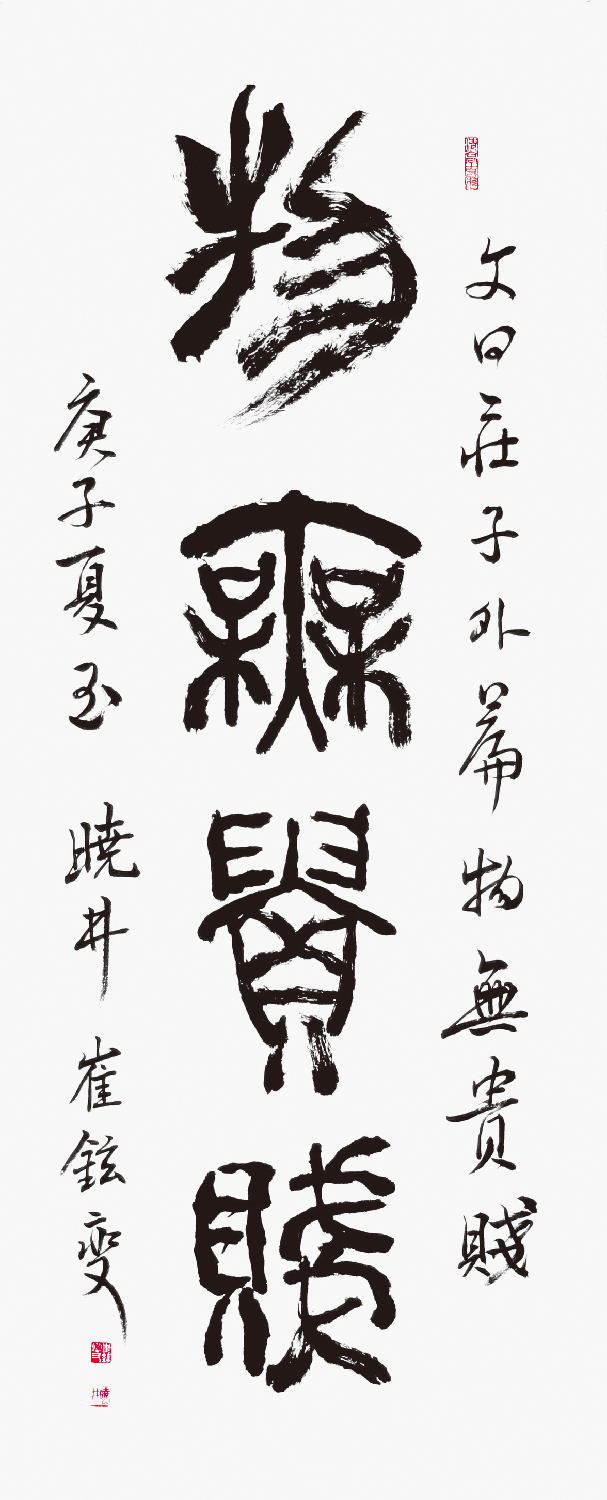 文曰莊子外篇物無貴賤
物無貴賤
庚子夏至 曉井 崔鉉燮